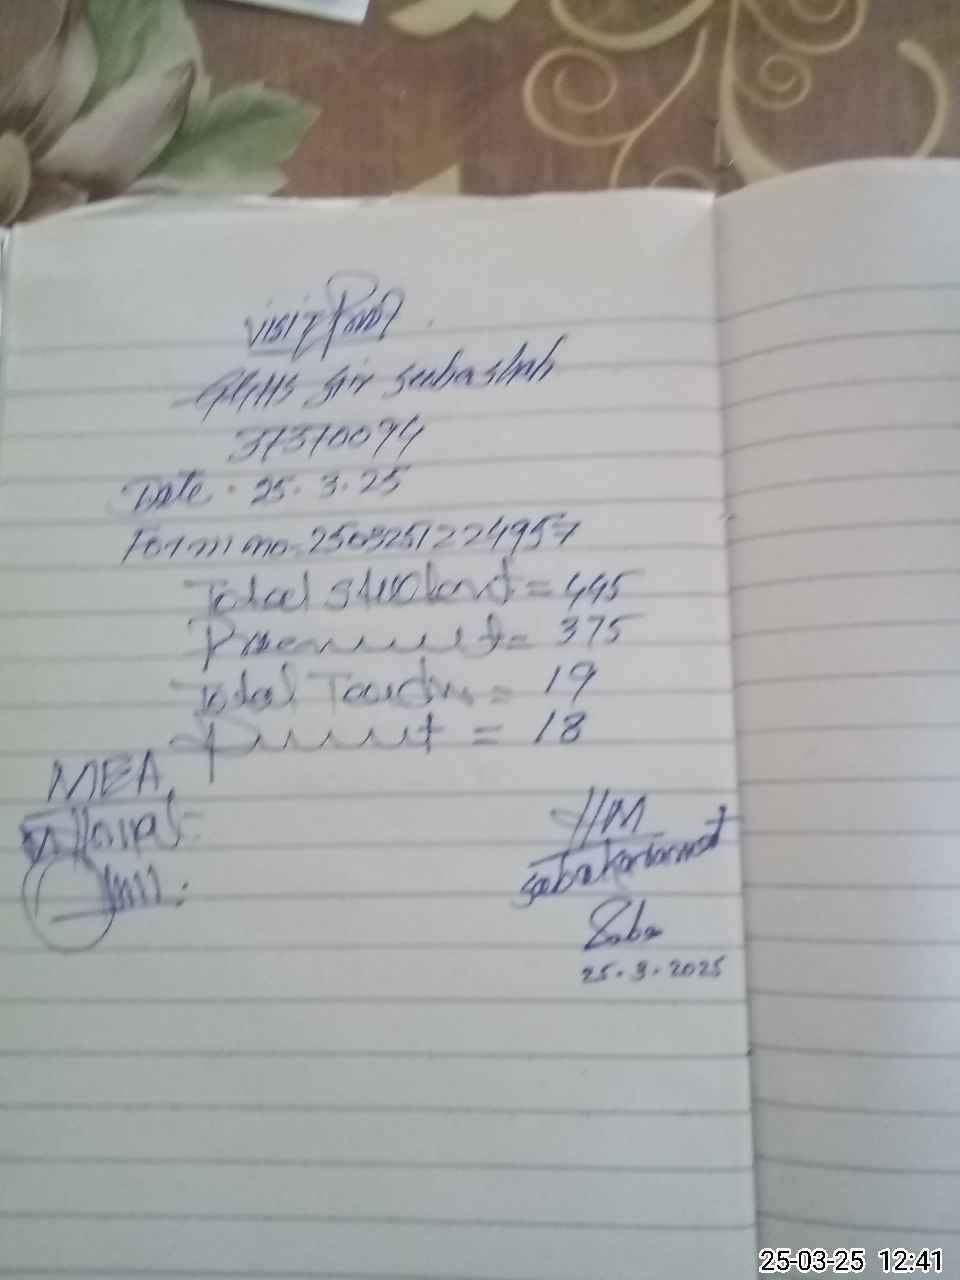 Visit Proof
GGHS
37310094
Date. 25.3.25
Form no. 2503251224957
Total student = 445
Present = 375
Total Teacher = 19
Present = 18
MEA
HM
Saba
25.3.2025
25-03-25 12:41